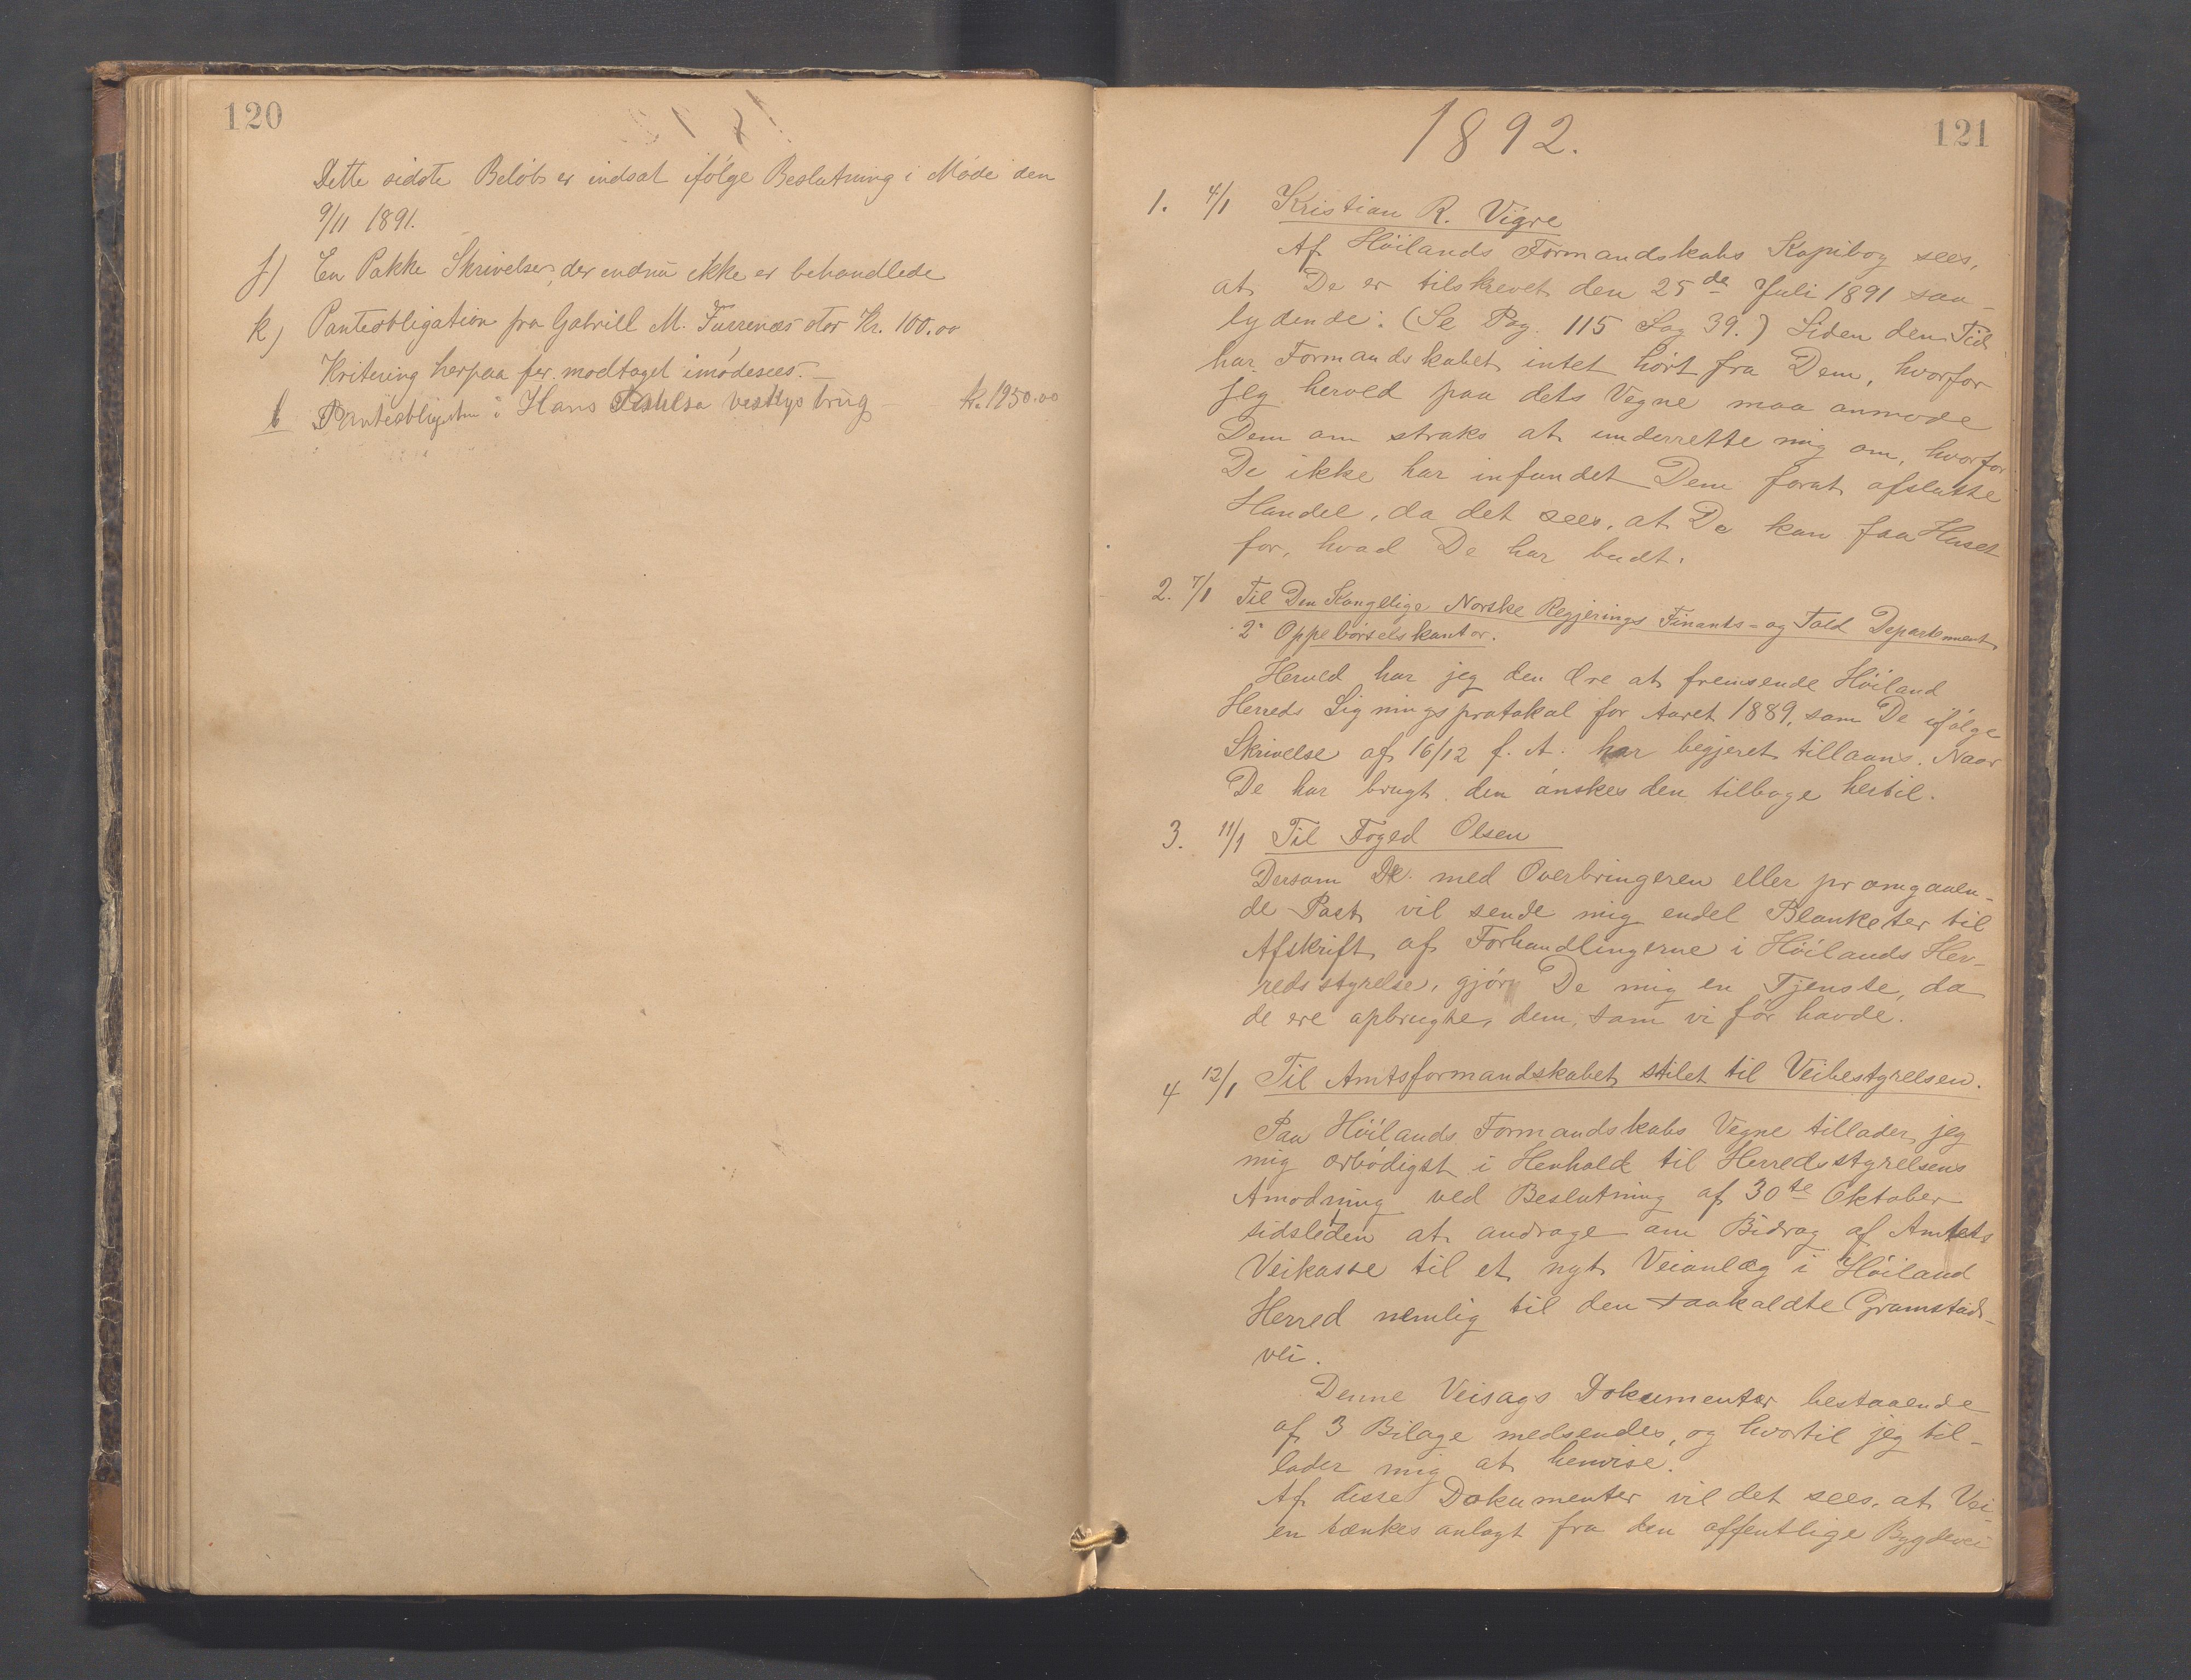 120
Dette sidste Beløb er indsat ifølge Beslutning i Møde den
9/11 1891.
j) En Pakke Skrivelser, der endnu ikke er behandlede
k) Panteobligation fra Gabriell M. stor Kr. 100.00
Kvitering herpaa for modtaget imødesees.
l Panteobligation i Hans brug kr. 1250.00
121
1892.
1. 4/1 Kristian R. Vigre
Af Höilands Formandskabs Kopibog sees,
at De er tilskrevet den 25de Juli 1891 saa-
lydende: (Se Pag. 115 Sag 39.) Siden den Tid
har Formandskabet intet hört fra Dem, hvorfor
jeg herved paa dets Vegne maa anmode
Dem om straks at underrette mig om, hvorfor
De ikke har infundet Dem forat afslutte
Handel, da det sees, at De kan faa Huset
for, hvad De har budt.
2. 7/1 Til Den Kongelige Norske Regjerings Finants- og Told Departement
2° Oppebörselskontor.
Herved har jeg den Ære at fremsende Höiland
Herreds Ligningsprotokol for Aaret 1889, som De ifölge
Skrivelse af 16/12 f. A. har begjeret tillaans. Naar
De har brugt den önskes den tilbage hertil.
3. 11/1 Til Foged Olsen
Dersom De med Overbringeren eller pr omgaaen-
de Post vil sende mig endel Blanketer til
Afskrift af Forhandlingerne i Höilands Her-
redsstyrelse, gjör De mig en Tjenste, da
de ere opbrugte, dem, som vi för havde.
4 12/1 Til Amtsformandskabet stilet til Veibestyrelsen.
Paa Höilands Formandskabs Vegne tillader jeg
mig ærbödigst i Henhold til Herredsstyrelsens
Amodning ved Beslutning af 30te Oktober
sidsleden at andrage om Bidrag af Amtets
Veikasse til et nyt Veianlæg i Höiland
Herred nemlig til den saakaldte Gramstad-
vei.
Denne Veisags Dokumenter bestaaende
af 3 Bilage medsendes, og hvortil jeg til-
lader mig at henvise.
Af disse Dokumenter vil det sees, at Vei-
en tænkes anlagt fra den offentlige Bygdevei